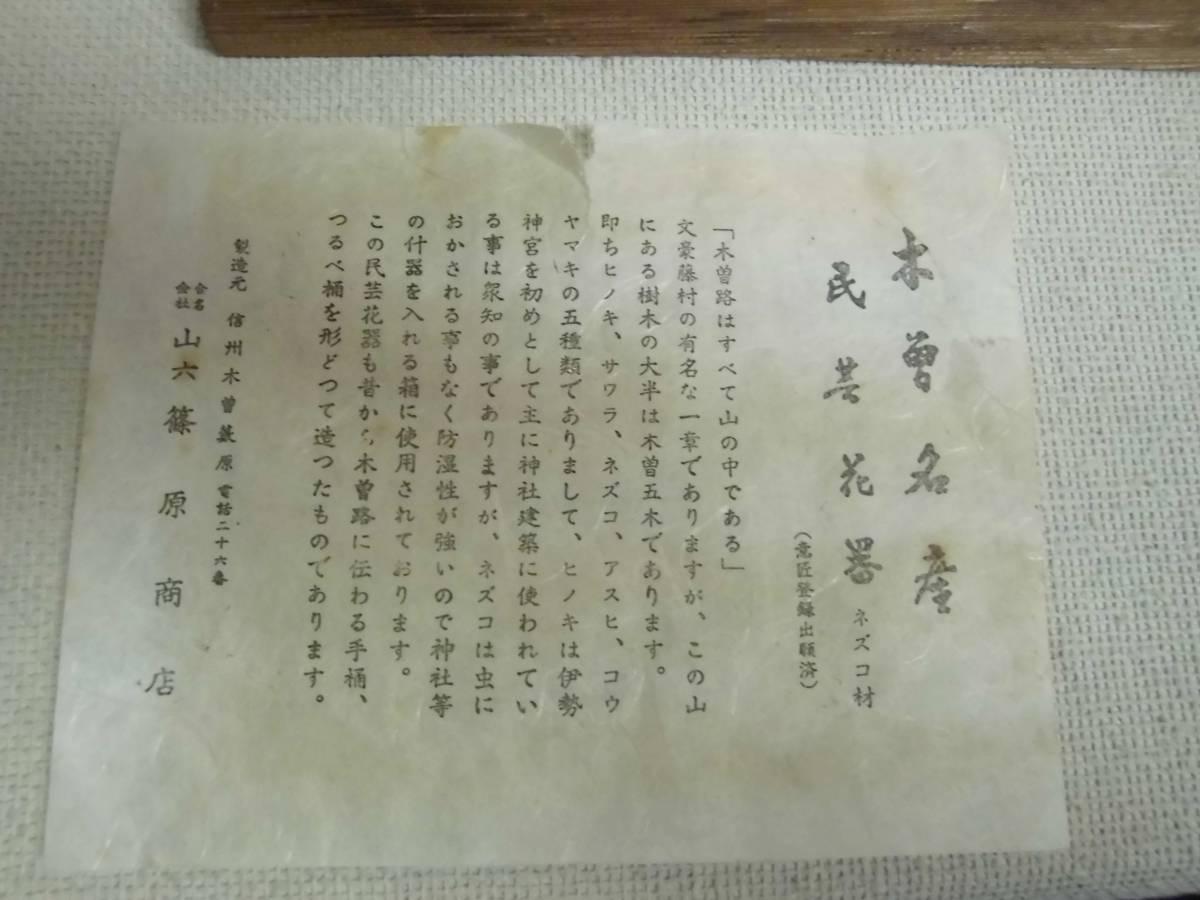 木曽名産
民芸花器 ネズコ材
(意匠登録出願済)
「木曽路はすべて山の中である」
文豪藤村の有名な一章でありますが、この山
にある樹木の大半は木曽五木であります。
即ちヒノキ、サワラ、ネズコ、アスヒ、コウ
ヤマキの五種類でありまして、ヒノキは伊勢
神宮を初めとして主に神社建築に使われてい
る事は衆知の事でありますが、ネズコは虫に
おかされる事もなく防湿性が強いので神社等
の什器を入れる箱に使用されております。
この民芸花器も昔から木曽路に伝わる手桶、
つるべ桶を形どつて造つたものであります。
製造元 信州木曽薮原 電話二十六番
合名会社 山六篠原商店